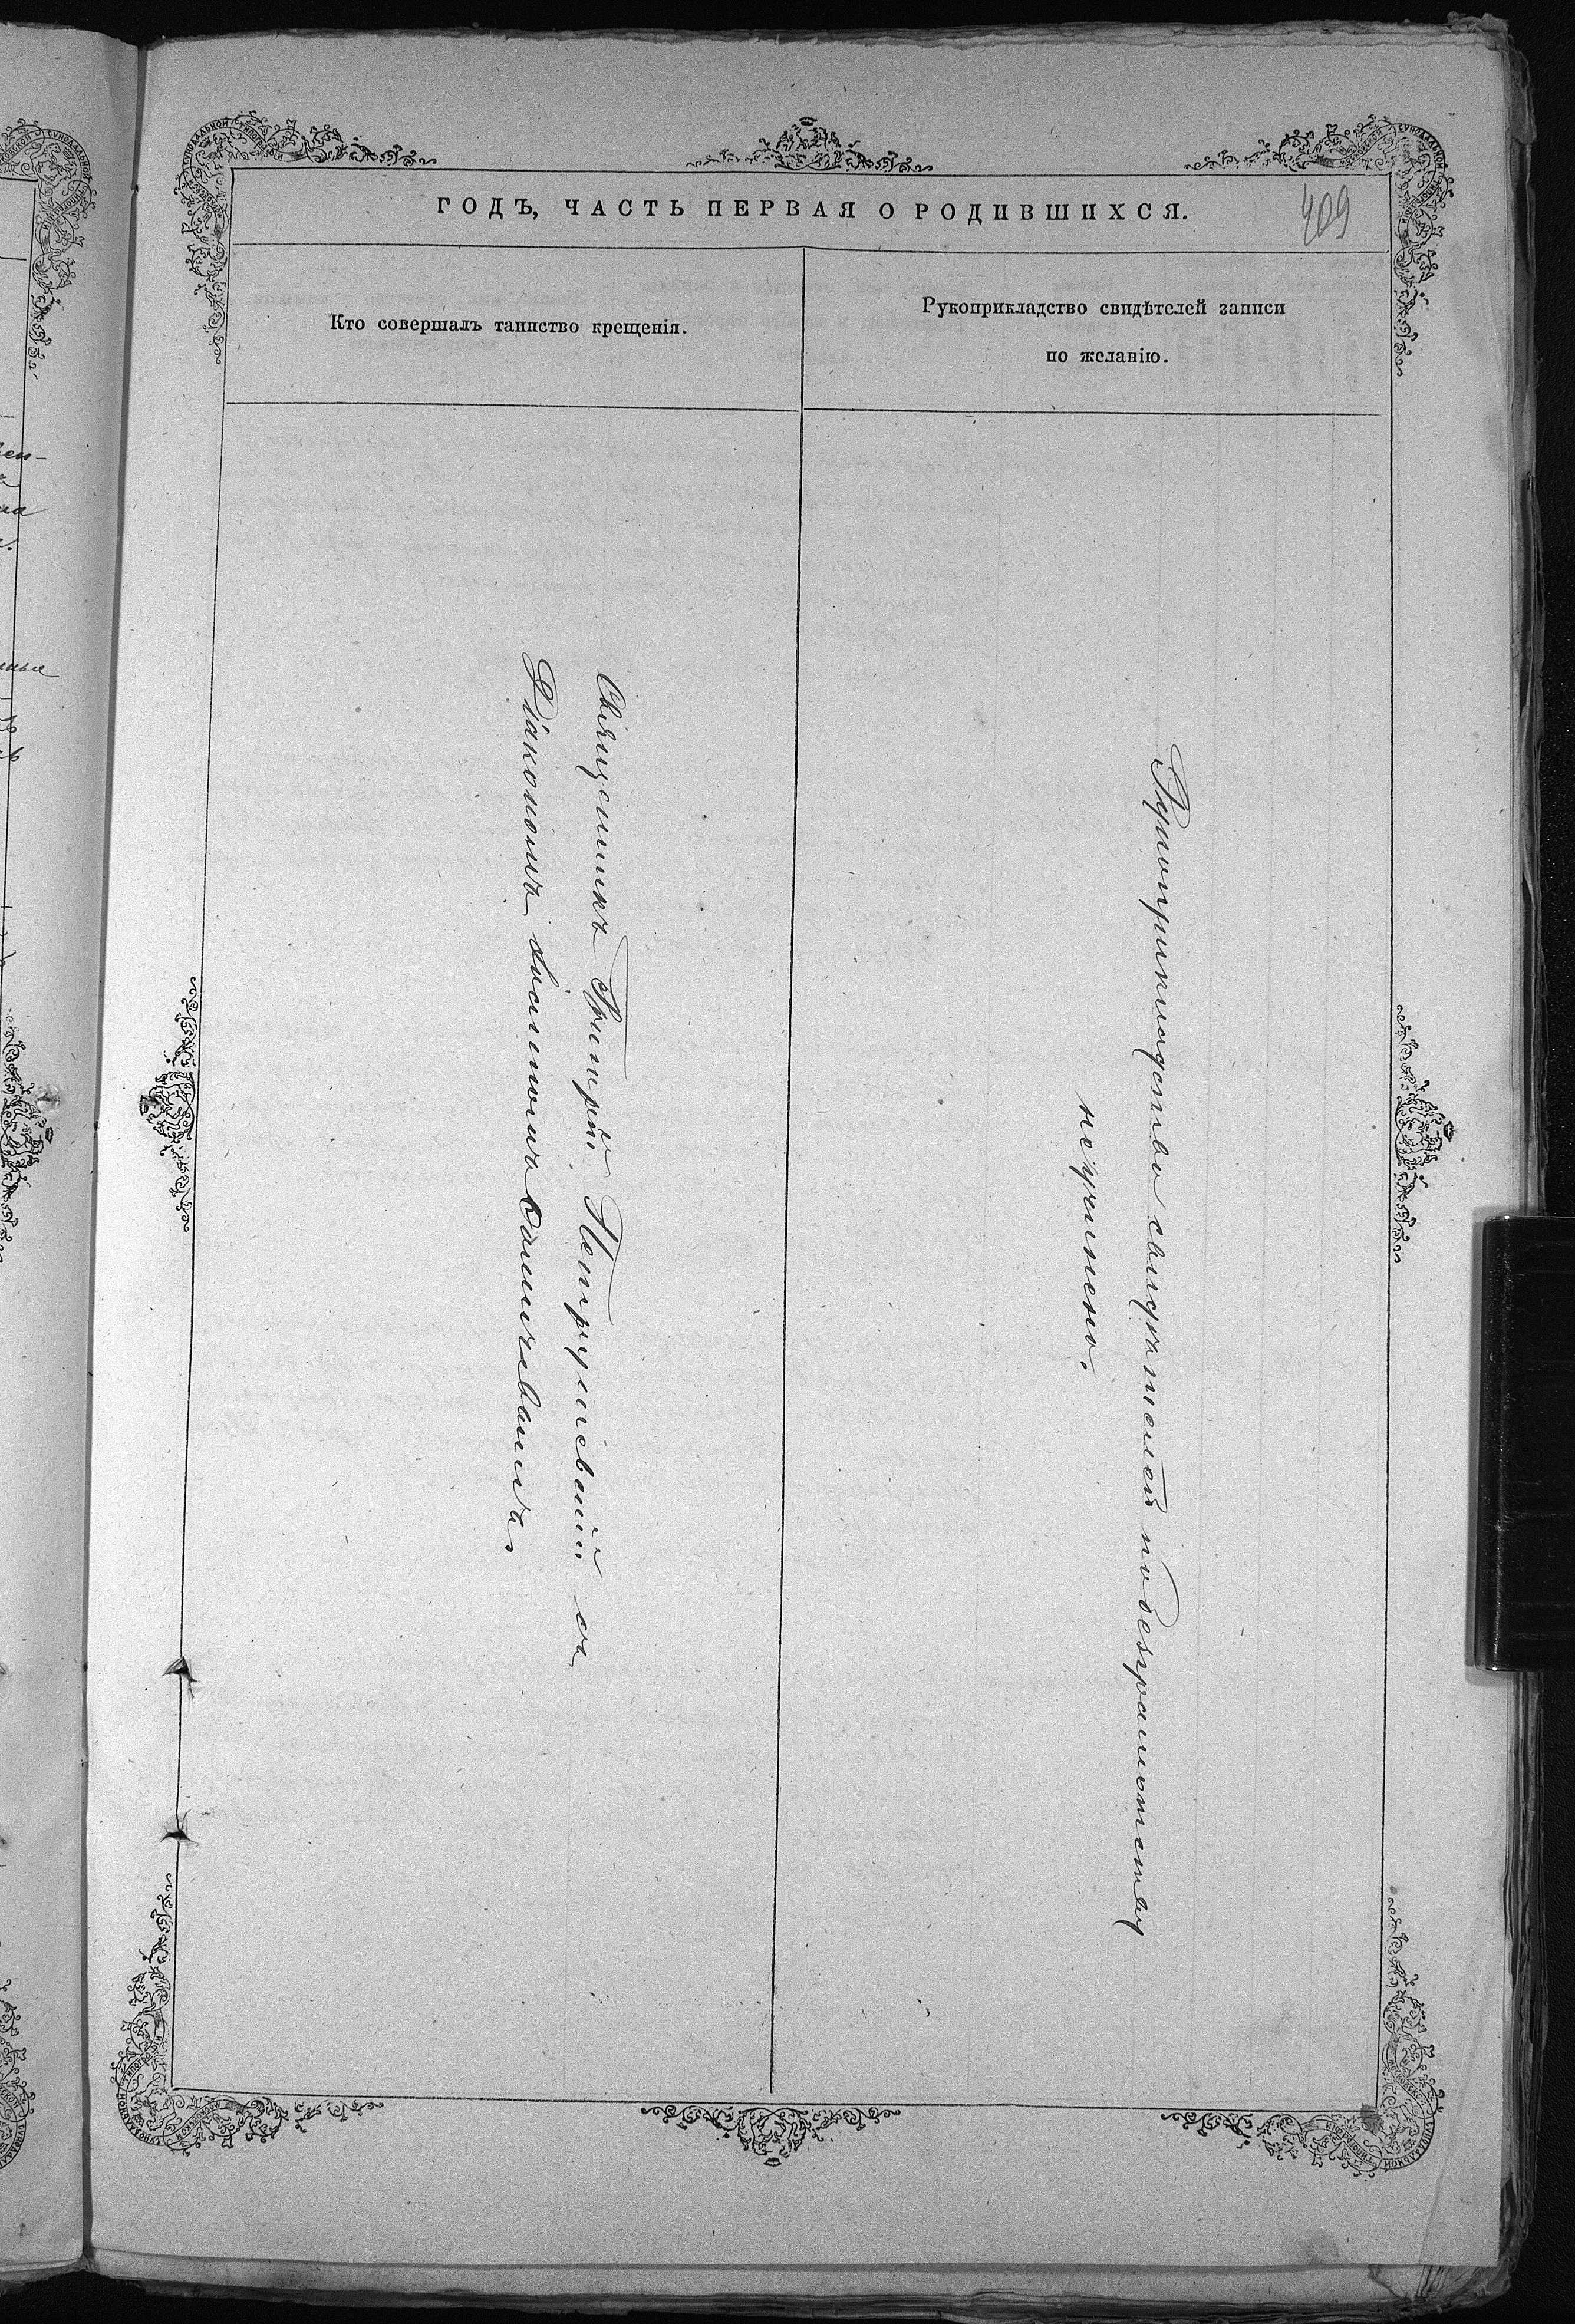 ГОДЪ, ЧАСТЬ ПЕРВАЯ О РОДИВШИХСЯ.
409
Кто совершалъ таинство крещенія.
Рукоприкладство свидѣтелей записи
по желанію.
Священникъ Петрушевскій съ
Діакономъ
Рукоприкладство свидѣтелей по безграмотству
неучинено.